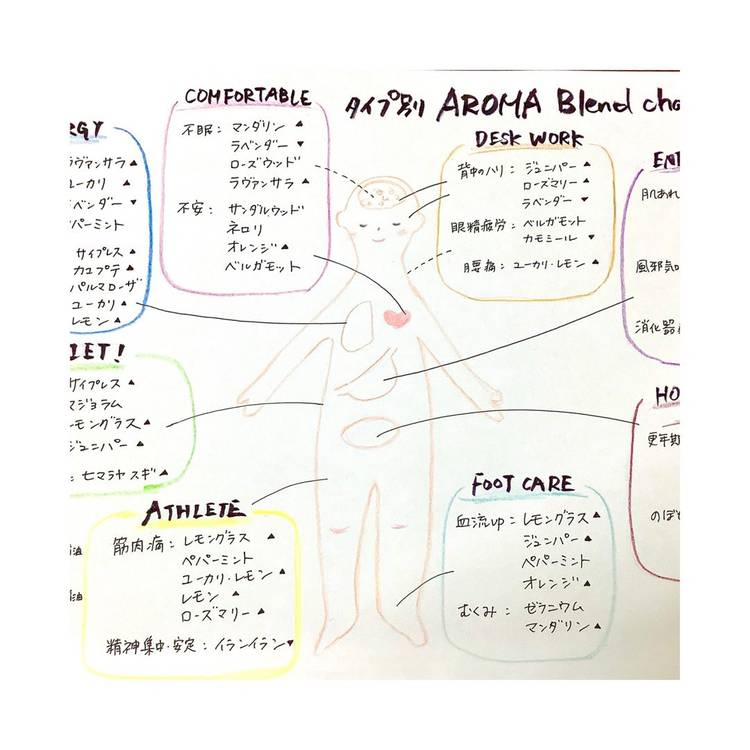 タイプ別 AROMA Blend cha
COMFORTABLE
不眠： マンダリン ▲
ラベンダー ▼
ローズウッド
ラヴァンサラ ▲
不安： サンダルウッド
ネロリ
オレンジ ▲
ベルガモット
DESK WORK
背中のハリ： ジュニパー ▲
ローズマリー ▲
ラベンダー ▼
眼精疲労： ベルガモット
カモミール ▼
腰痛： ユーカリ・レモン ▲
RGY
ラヴァンサラ ▲
ユーカリ ▲
ベンダー ▼
パパーミント
サイプレス ▲
カユプテ ▲
パルマローザ
ユーカリ ▲
レモン ▲
LET!
サイプレス ▲
マジョラム
ーモングラス ▲
ジュニパー ▲
： ヒマラヤスギ ▲
ATHLETE
筋肉痛： レモングラス ▲
ペパーミント
ユーカリ・レモン ▲
レモン ▲
ローズマリー ▲
精神集中・安定： イランイラン ▼
FOOT CARE
血流up： レモングラス ▲
ジュニパー ▲
ペパーミント
オレンジ ▲
むくみ： ゼラニウム
マンダリン ▲
肌あれ
風邪気の
消化器
HO
更年期
のぼせ